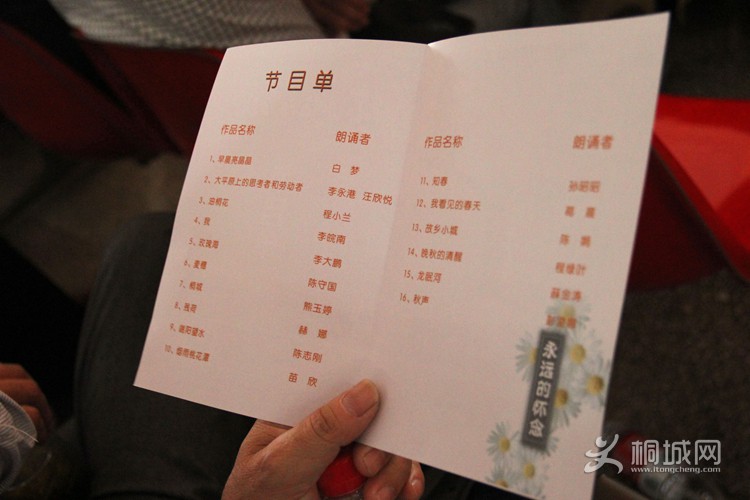 节目单
作品名称 朗诵者
1、早晨亮晶晶 白 梦
2、大平原上的思考者和劳动者 李永港 汪欣悦
3、油桐花 程小兰
4、我 李皖南
5、玫瑰海 李大鹏
6、麦穗 陈守国
7、桐城 熊玉婷
8、残荷 赫 娜
9、端阳望水 陈志刚
10、烟雨桃花潭 苗 欣
作品名称 朗诵者
11、知春
12、我看见的春天
13、故乡小城
14、晚秋的清醒
15、龙眠河
16、秋声
永远的怀念
桐城网
www.itongcheng.com